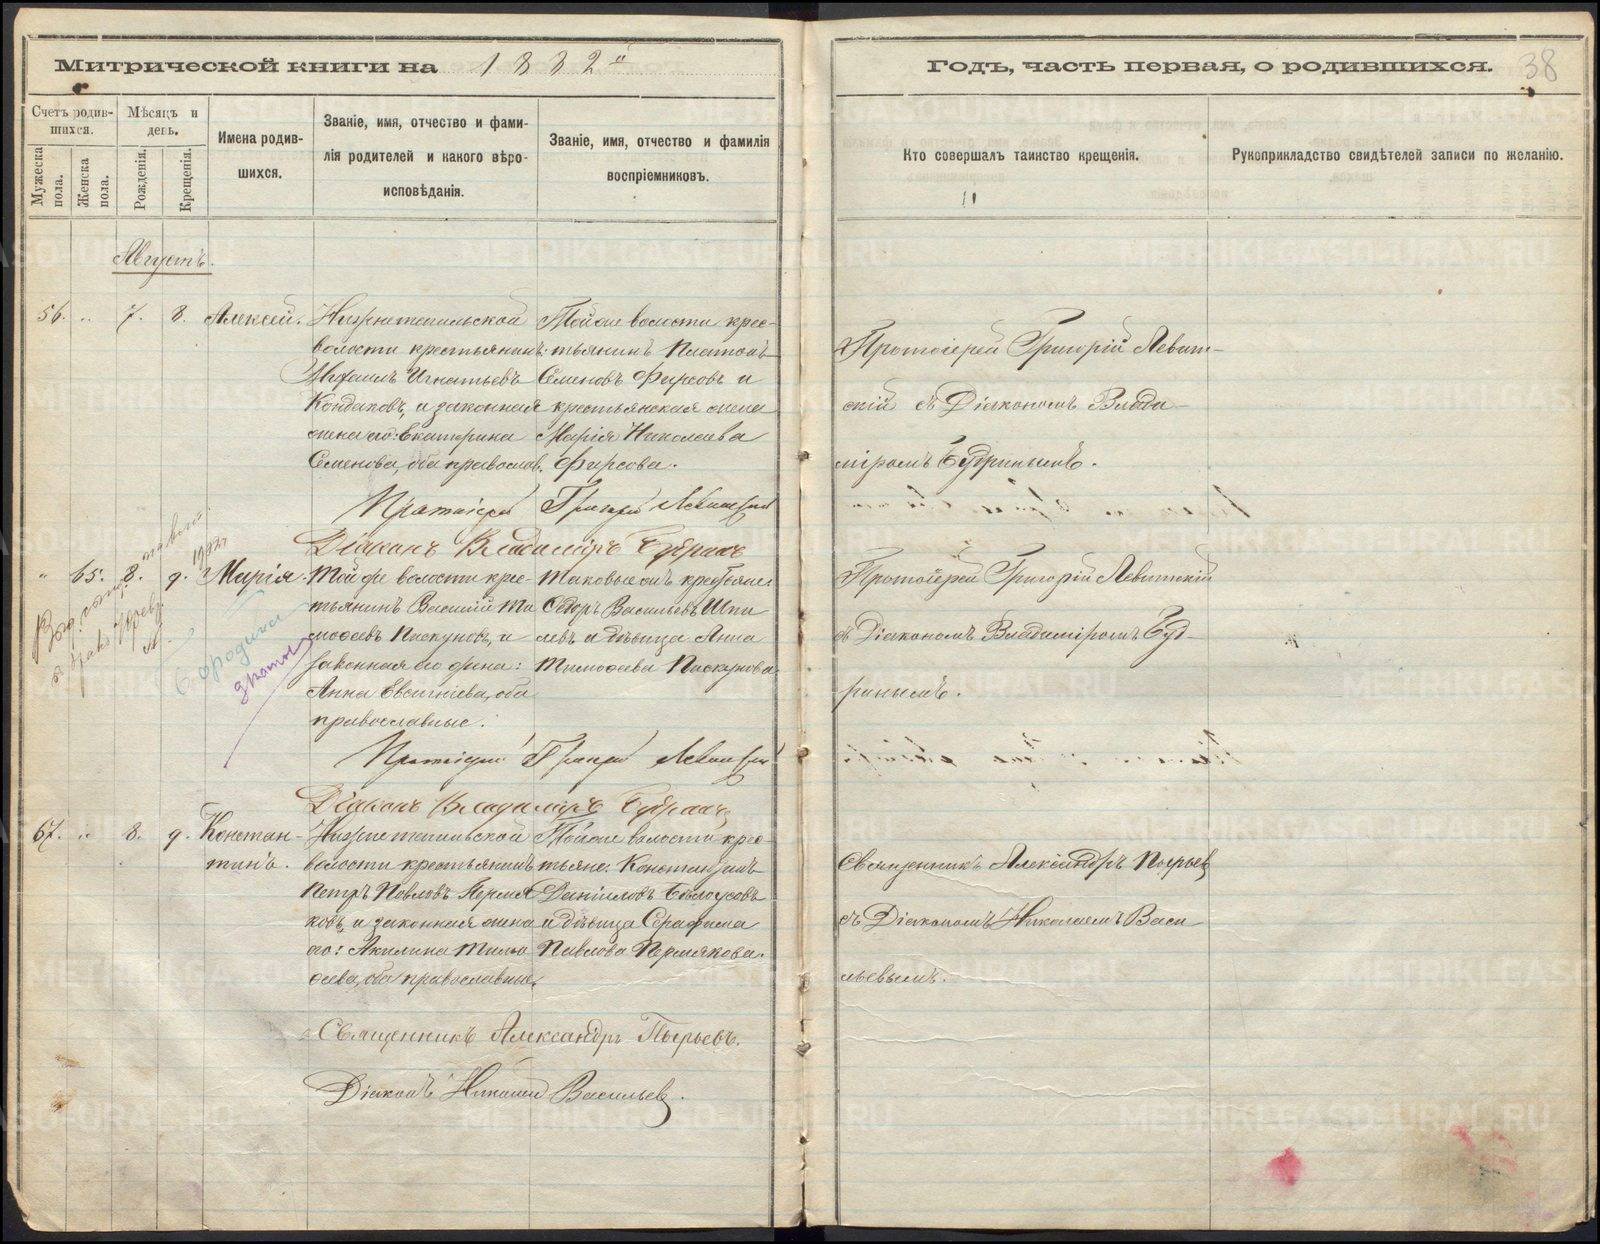 Митрической книги на 1882й
Годъ, часть первая, о родившихся.
38
Счетъ родив-
шихся.
Мѣсяцъ и
день.
Имена родив-
шихся.
Званіе, имя, отчество и фами-
лія родителей и какого вѣро-
исповѣданія.
Званіе, имя, отчество и фамилія
воспріемниковъ.
Мужеска
пола.
Женска
пола.
Рожденія.
Крещенія.
Кто совершалъ таинство крещенія.
Рукоприкладство свидѣтелей записи по желанію.
Августъ.
56. „ 7. 8. Алексѣй.
Нижнетагильской
волости крестьянинъ:
Михаилъ Игнатьевъ
Кондаковъ, и законная
жена его: Екатерина
Семенова, оба православ.
Тойже волости крес-
тьянинъ Платонъ
Семеновъ Фирсовъ и
крестьянская жена
Марія Николаева
Фирсова.
Протоіерей Григорій Левит-
скій съ Діакономъ Влади-
міромъ Будринымъ.
Протоіерей Григорій Левитскій
Діаконъ Владиміръ Будринъ
„ 65. 8. 9. Марія.
Той же волости крес-
тьянинъ Василій Ти-
моѳеевъ Паскуновъ, и
законная его жена:
Анна Евсигніева, оба
православные.
таковыемъ крестьянинъ
Ѳедоръ Васильевъ
и дѣвица Анна
Тимоѳеева Паскунова.
Протоіерей Григорій Левитскій
съ Діакономъ Владиміромъ Буд-
ринымъ.
Протоіерей Григорій Левитскій
Діаконъ Владиміръ Будринъ
67. „ 8. 9. Констан-
тинъ.
Нижнетагильской
волости крестьянинъ
Петръ Павловъ Пермя-
ковъ, и законная жена
его: Акилина Тимо-
ѳеева, оба православные.
Тойже волости крес-
тьяне: Константинъ
Даниловъ Бѣлоусовъ
и дѣвица Серафима
Павлова Пермякова.
Священникъ Александръ Пырьевъ
съ Діакономъ Николаемъ Васи-
льевымъ.
Священникъ Александръ Пырьевъ.
Діаконъ Николай Васильев.